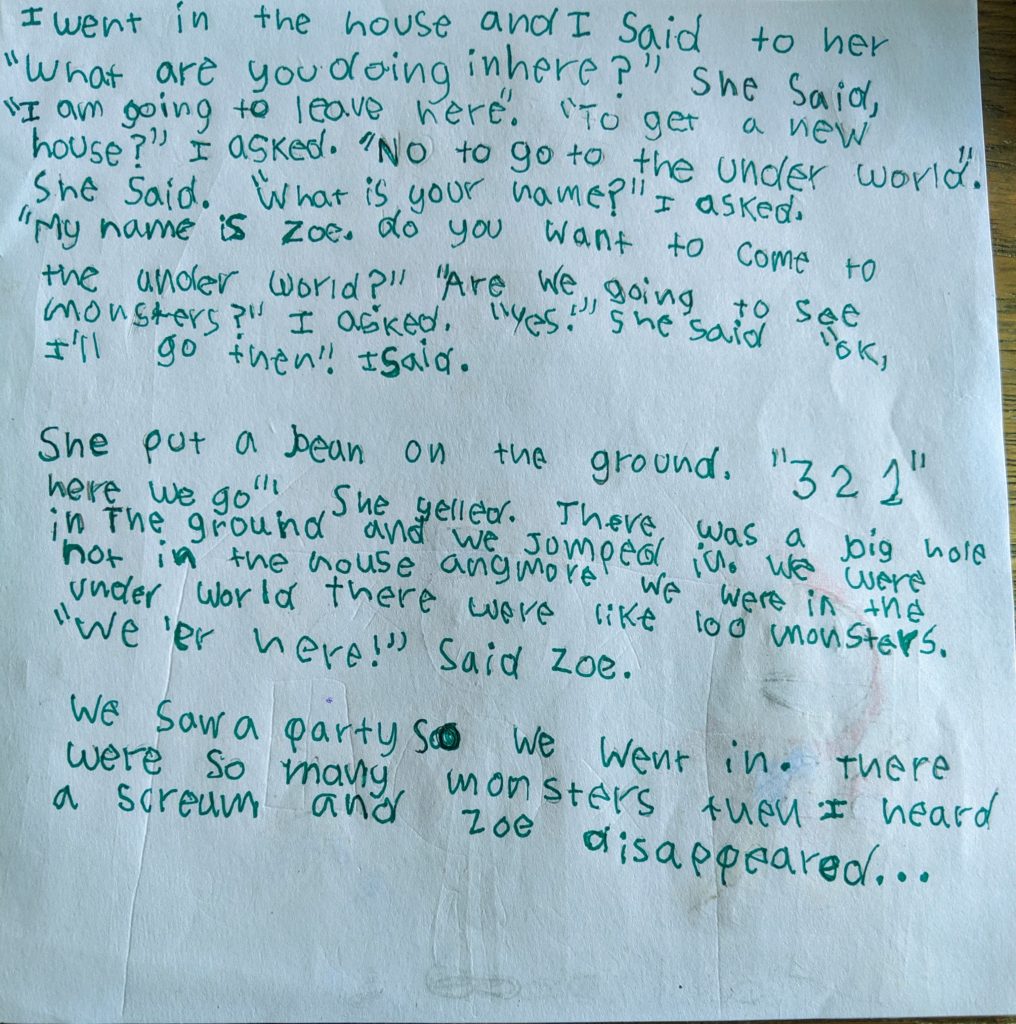 I went in the house and I Said to her
"What are you doing in here?" She Said,
"I am going to leave here". "To get a new
house?" I asked. "No to go to the under world."
She Said. "What is your name?" I asked.
"My name is Zoe. do you want to come to
the under world?" "Are we going to see
monsters?" I asked. "Yes!" She said "OK,
I'll go then"! I Said.
She put a bean on the ground. "3 2 1"
here we go"! She yelled. There was a big hole
in The ground and we Jomped in. We were
not in the house anymore we were in the
under world there were like 100 monsters.
"We 'er here!" Said Zoe.
We Saw a party So we went in. there
were so many monsters then I heard
a scream and Zoe disappeared...